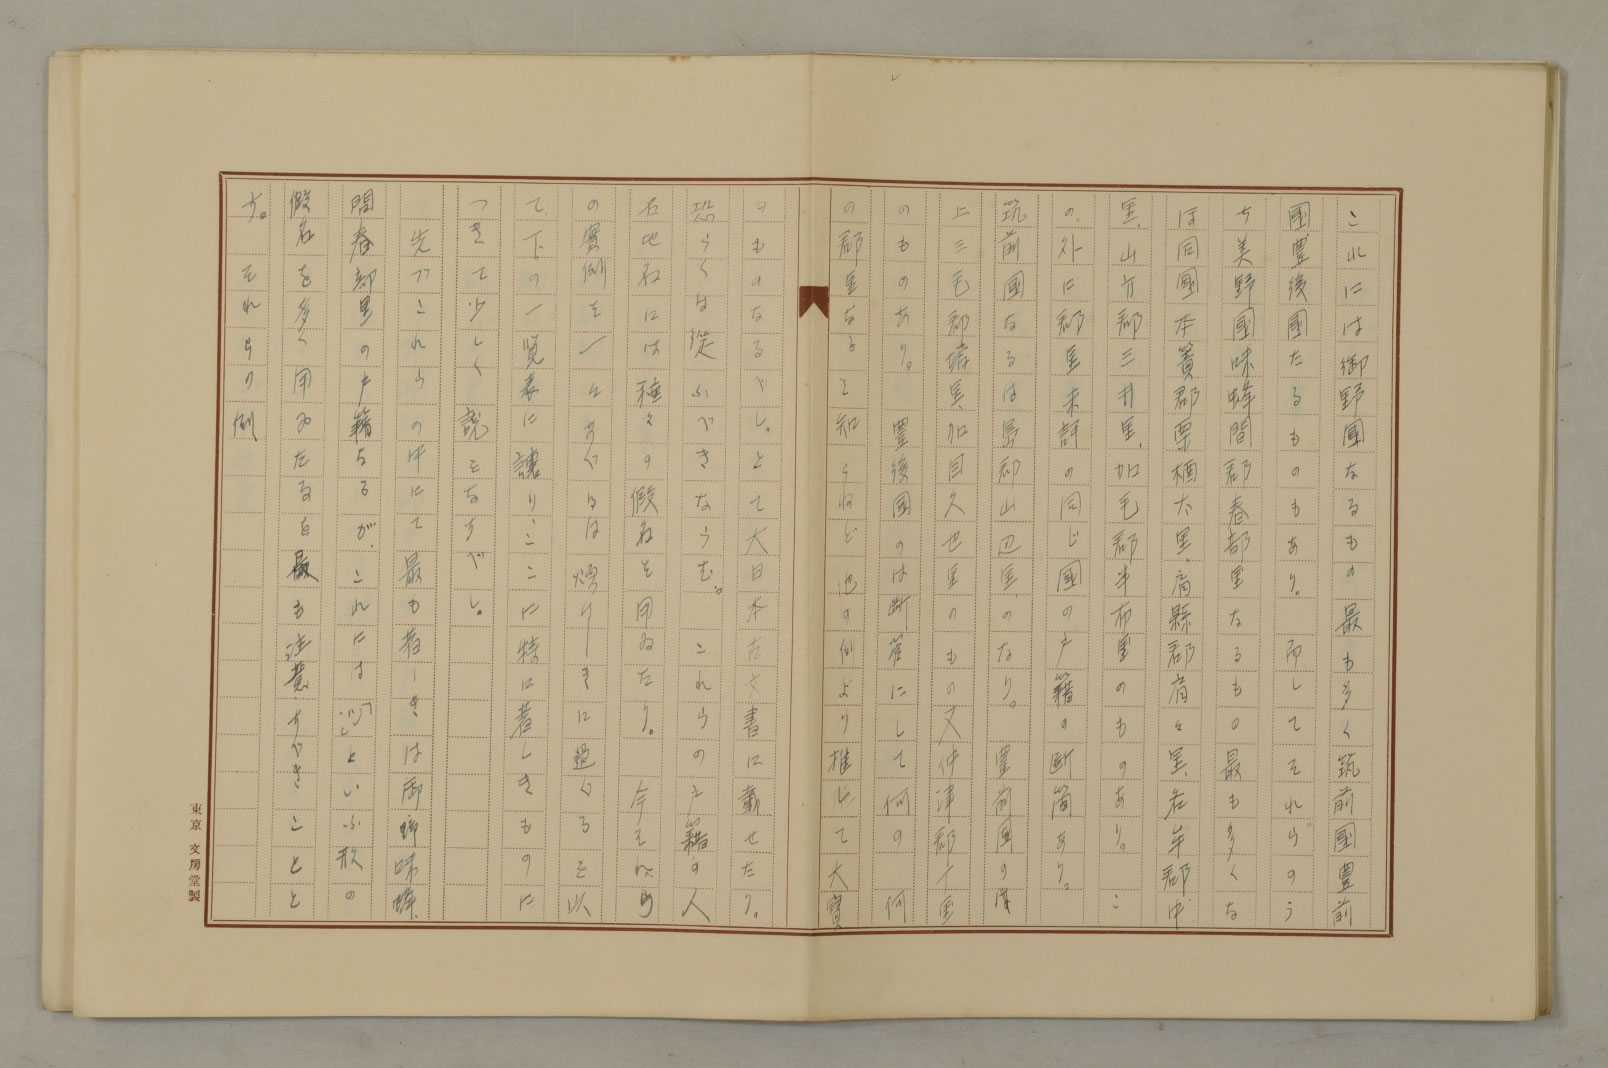 これには御野國なるもの最も多く筑前國豊前
國豊後國たるものもあり。而してそれらのう
ち美野國味蜂間郡春部里なるもの最も多くな
ほ同國本簀郡栗栖太里、肩縣郡肩々里、各牟郡中
里、山方郡三井里、加毛郡半布里のものあり。こ
の外に郡里未詳の同じ國の戸籍の断簡あり。
筑前國なるは島郡川辺里、のなり。豊前國のは
上三毛郡塔里、加目久也里のもの又仲津郡丁里
のものあり。豊後國のは断簡にして何の何
の郡里なるを知らねど他の例より推して大寶
のものなるべし。とて大日本古文書に載せたり。
恐らくは従ふべきならむ。これらの戸籍の人
名地名には種々の假名を用ゐたり。今それらの
の實例を一々あぐるは煩はしきに過ぐるを以
て、下の一覧表に譲りここに特に著しきものに
つきて少しく説をなすべし。
先づこれらの中にて最も著しきは御野味蜂
間春部里の戸籍なるが、これには「ツ」といふ形の
假名を多く用ゐたるを最も注意すべきことと
す。それらの例
東京 文房堂製